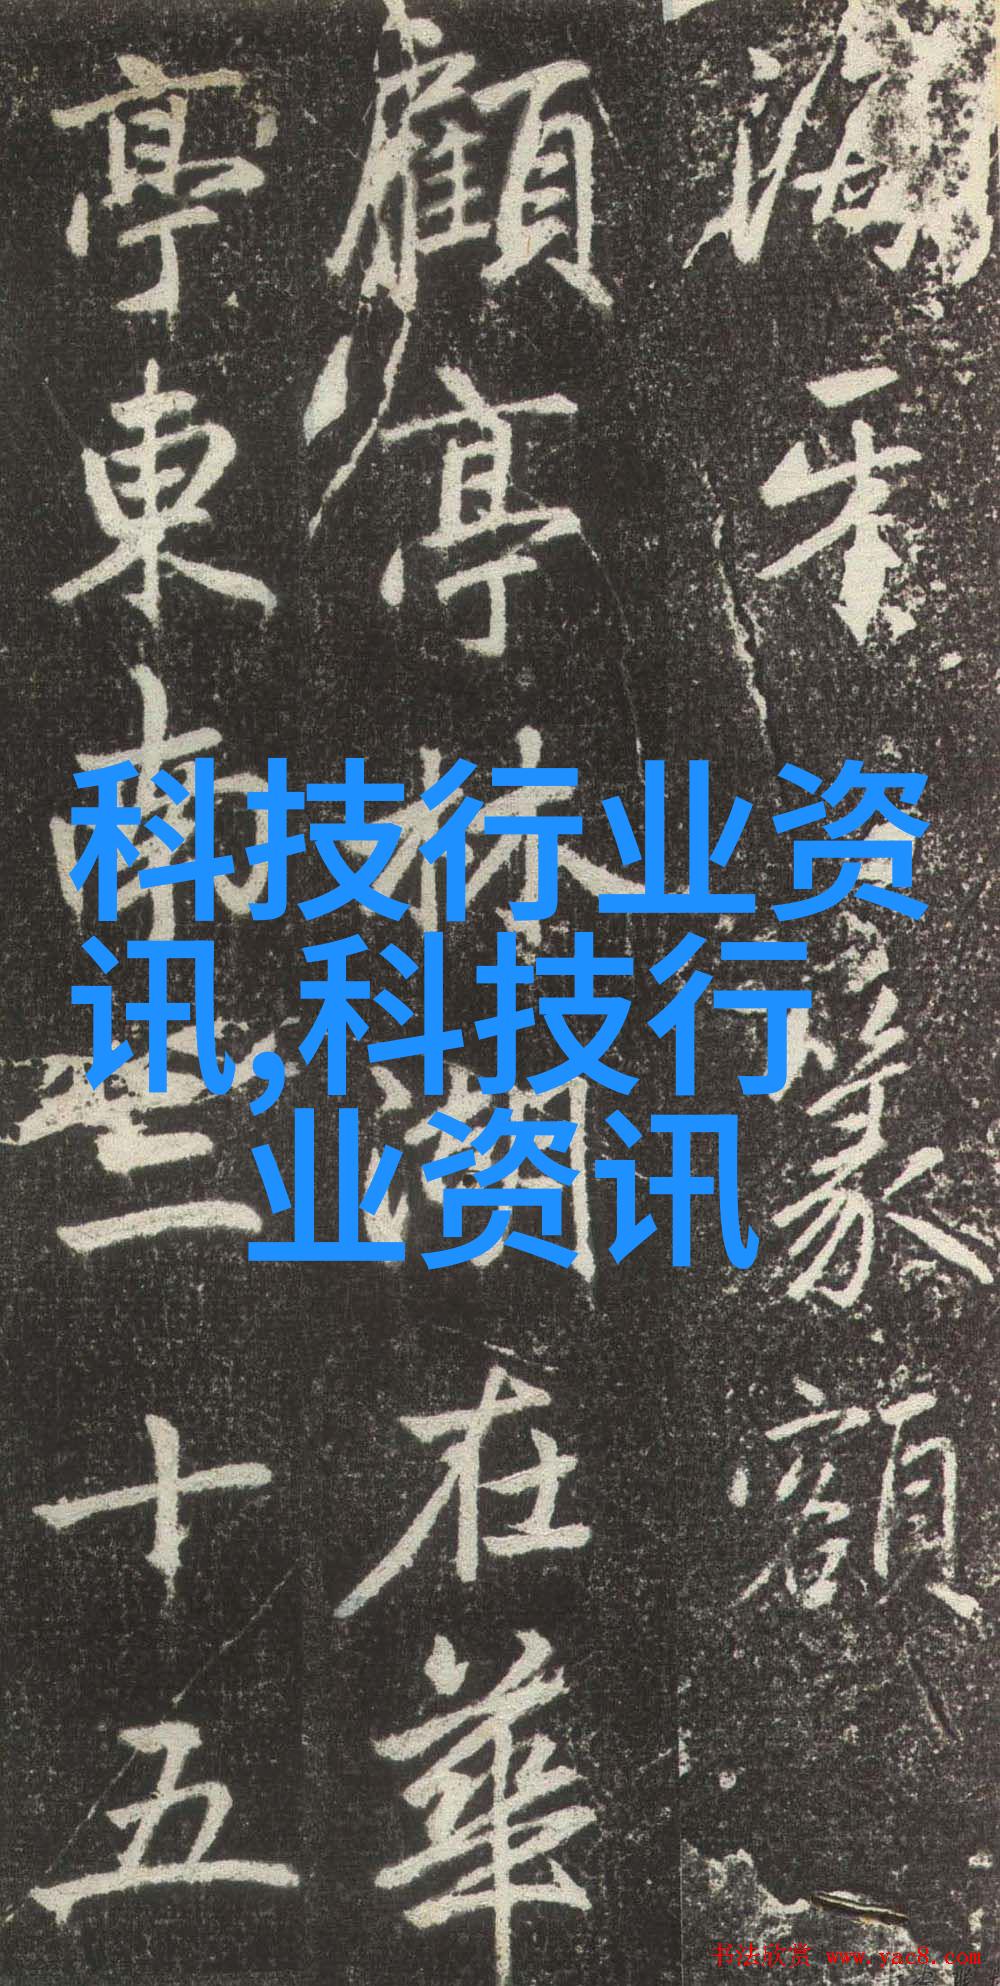 篆額
顧亭林湖在華
亭東南三十五
科技行业资
讯,科技行
业资讯
书法欣赏 www.yac8.com